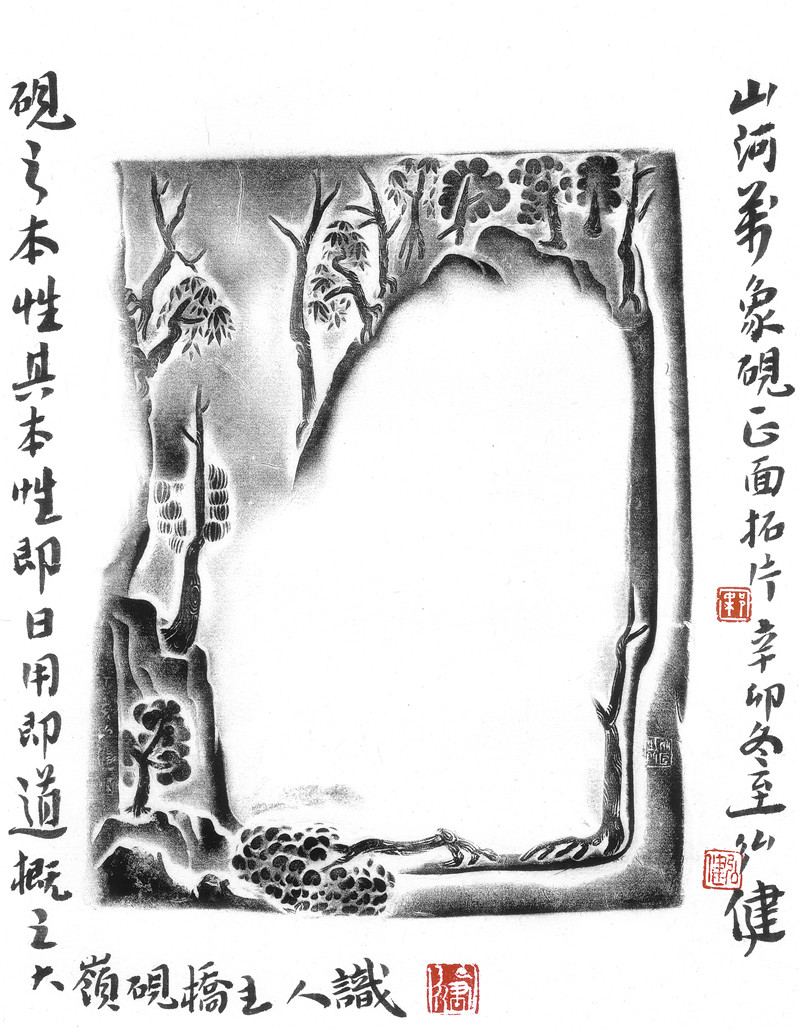 山河萬象硯正面拓片辛卯冬至弘健
弘健
硯之本性其本性即日用即道概之大
嶺硯橋主人識